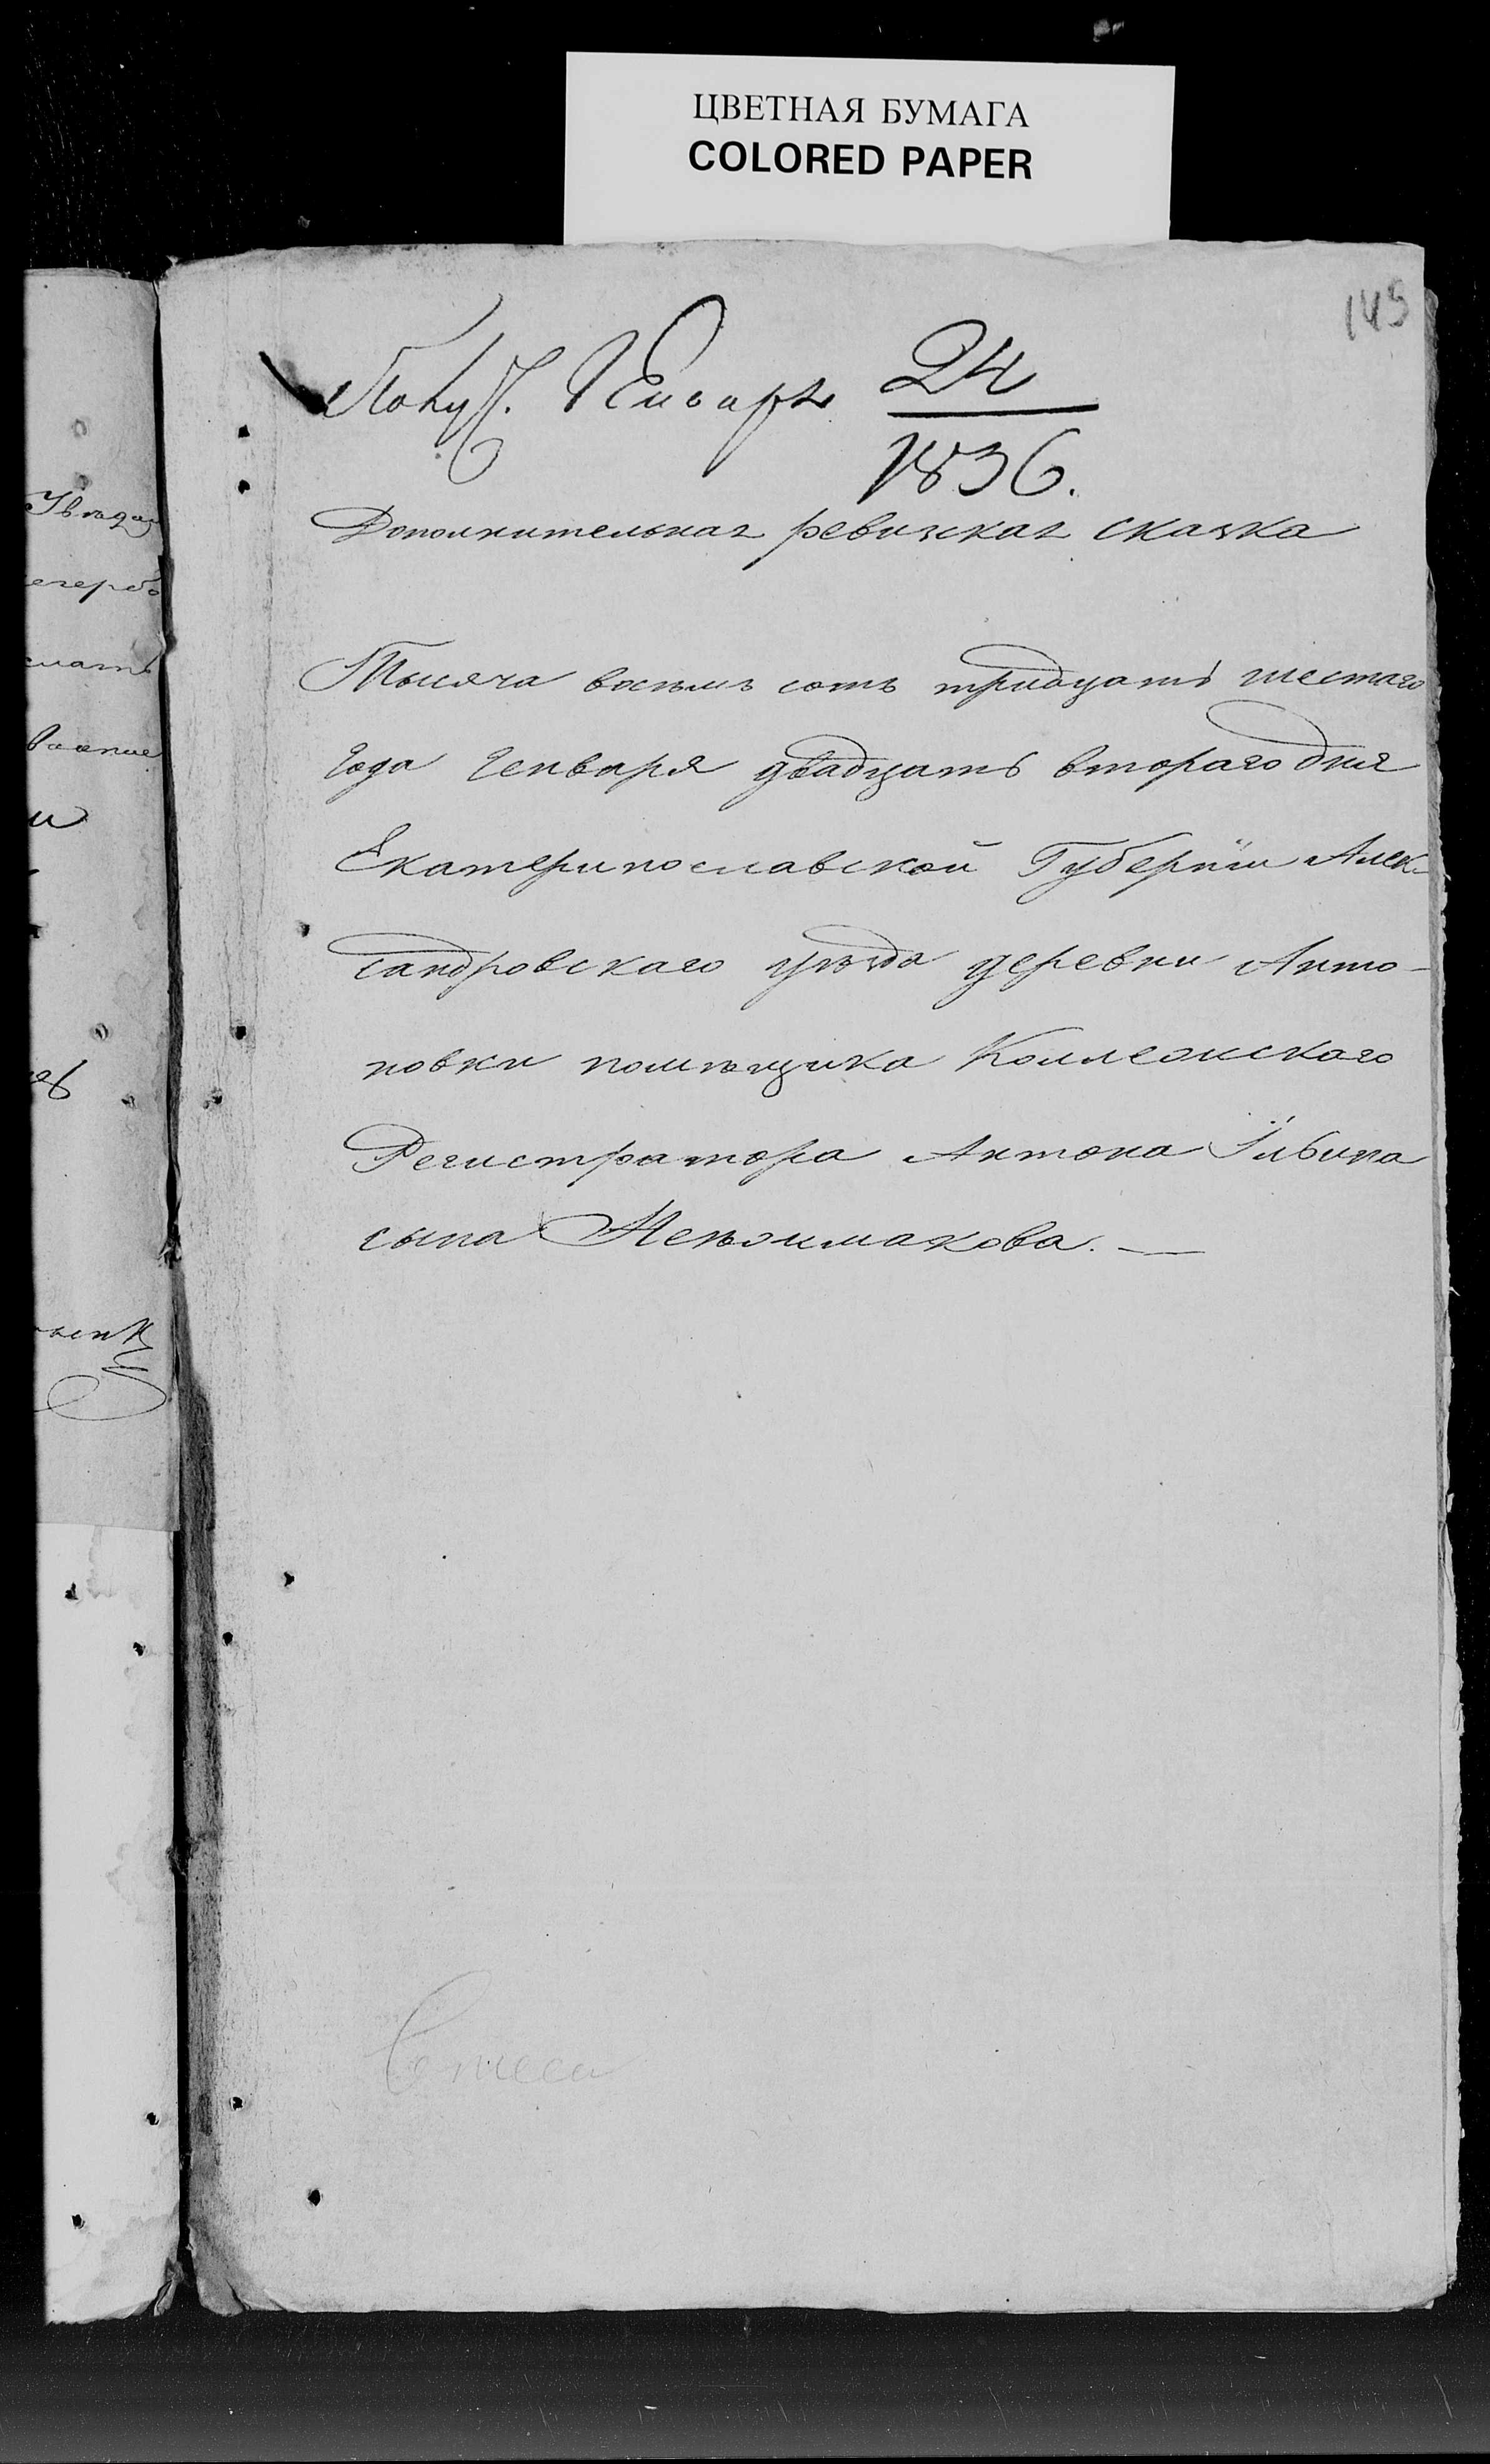 ЦВЕТНАЯ БУМАГА
COLORED PAPER
145
Получ. Генваря 24
1836.
Дополнительная ревизская сказка
Тысяча восемь сотъ тридцать шестаго
года Генваря двадцать втораго дня
Екатеринославской Губерніи Алек-
сандровскаго уѣзда деревни Анто-
новки помѣщика Коллежскаго
Регистратора Антона Ильина
сына